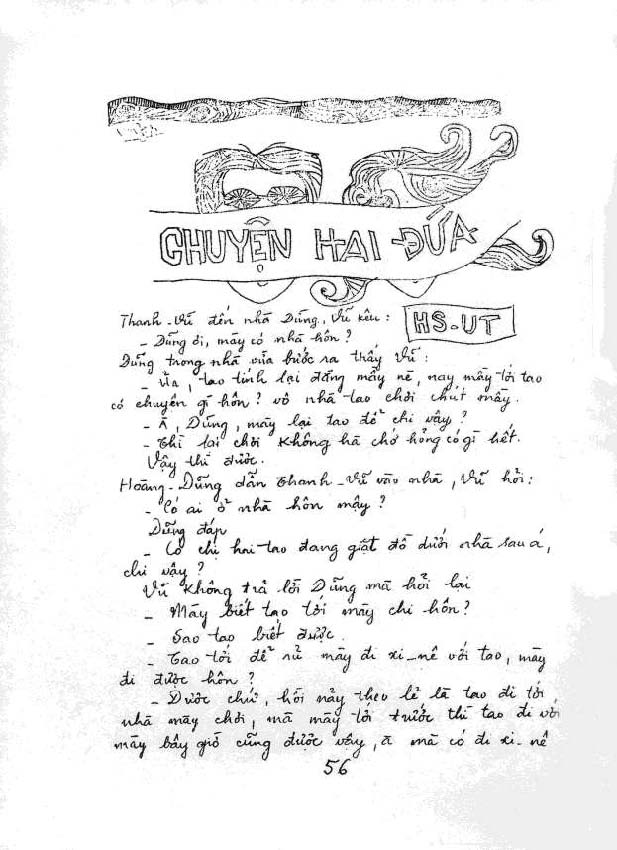 CHUYỆN HAI ĐỨA
HS-UT
Thanh-Vũ đến nhà Dũng, Vũ kêu:
- Dũng ơi, mày có nhà hôn?
Dũng trong nhà vừa bước ra thấy Vũ:
- Ủa, tao tính lại đằng mầy nè, nay mầy tới tao
có chuyện gì hôn? vô nhà tao chơi chút mầy.
- À, Dũng, mày lại tao để chi vậy?
- Thì lại chơi không hà chớ hổng có gì hết.
Vậy thì được.
Hoàng-Dũng dẫn Thanh-Vũ vào nhà, Vũ hỏi:
- Có ai ở nhà hôn mậy?
Dũng đáp
- Có chị hai-tao đang giặt đồ dưới nhà sau á,
chi vậy?
Vũ không trả lời Dũng mà hỏi lại
- Mày biết tao tới mày chi hôn?
- Sao tao biết được.
- Tao tới để rủ mày đi xi-nê với tao, mày
đi được hôn?
- Được chứ, hồi nảy theo lẻ là tao đi tới
nhà mày chơi, mà mày tới trước thì tao đi với
mày bây giờ cũng được vậy, à mà có đi xi-nê
56